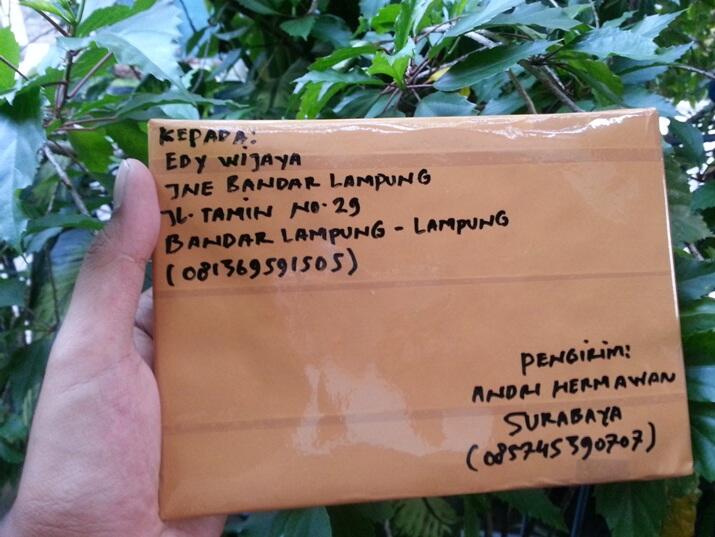 KEPADA:
EDY WIJAYA
JNE BANDAR LAMPUNG
JL. TAMIN NO. 29
BANDAR LAMPUNG - LAMPUNG
(081369591505)
PENGIRIM:
ANDRI HERMAWAN
SURABAYA
(085745390707)